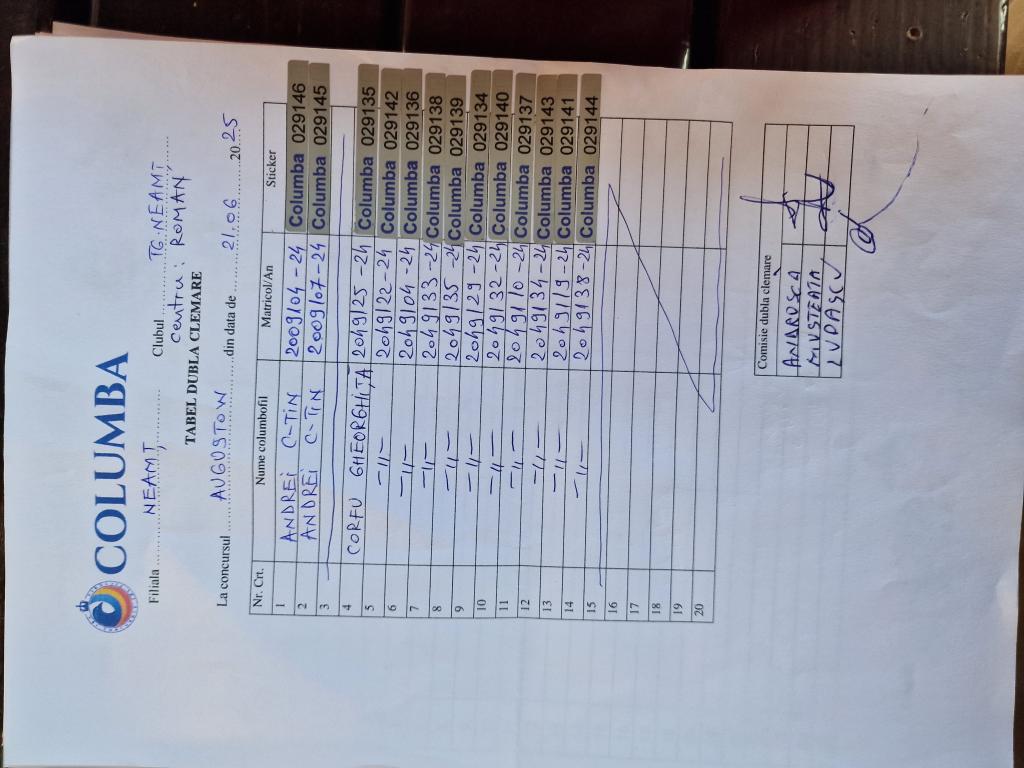 COLUMBA
Filiala NEAMȚ Clubul TG. NEAMȚ
Centru: ROMAN
TABEL DUBLA CLEMARE
La concursul AUGUSTOW din data de 21.06 2025
Nr. Crt. Nume columbofil Matricol/An Sticker
1 ANDREI C-TIN 2009104-24 Columba 029146
2 ANDREI C-TIN 2009107-24 Columba 029145
3
4 CORFU GHEORGHIȚĂ 2049125-24 Columba 029135
5 -11- 2049122-24 Columba 029142
6 -11- 2049104-24 Columba 029136
7 -11- 2049133-24 Columba 029138
8 -11- 2049135-24 Columba 029139
9 -11- 2049129-24 Columba 029134
10 -11- 2049132-24 Columba 029140
11 -11- 2049110-24 Columba 029137
12 -11- 2049134-24 Columba 029143
13 -11- 2049119-24 Columba 029141
14 -11- 2049138-24 Columba 029144
15
16
17
18
19
20
Comisie dubla clemare
ANDRUȘCĂ
MUSTEAȚĂ
LUPAȘCU